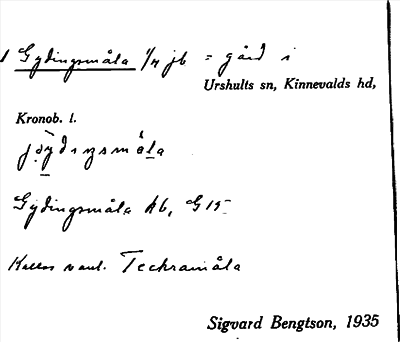 1 Gydingsmåla 1/4 jb = gård i
Urshults sn, Kinnevalds hd,
Kronob. l.
Gydingsmåla hb, G 15
Kallas vanl. Teckramåla
Sigvard Bengtson, 1935